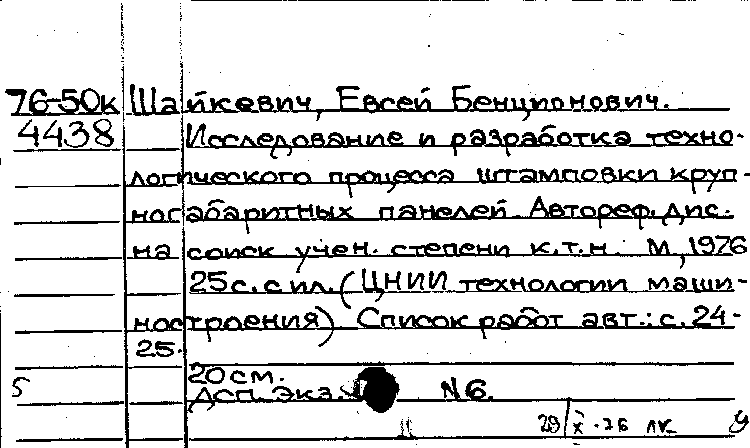 76-50к Шайкевич, Евсей Бенционович.
4438 Исследование и разработка техно-
логического процесса штамповки круп-
ногабаритных панелей. Автореф. дис.
на соиск учен. степени к.т.н. М, 1976
25с. с ил. (ЦНИИ технологии маши-
ностроения). Список работ авт.: с. 24-
25.
20см.
5 Дсп. Экз. N6.
29/X-76 лк